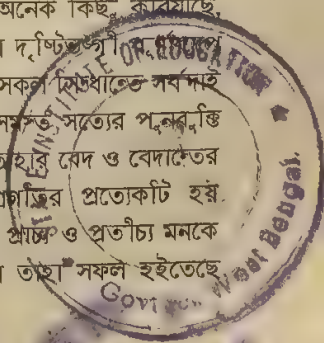 অনেক কিছু করিয়াছে,
দৃষ্টিভঙ্গী
সকল সিদ্ধান্তেও সর্বদাই
সমস্ত সত্যের পুনরুক্তি
তাহার বেদ ও বেদান্তের
প্রত্যেকটি হয়
প্রাচ্য ও প্রতীচ্য মনকে
তাহা সফল হইতেছে
INSTITUTE OF EDUCATION
Govt West Bengal.